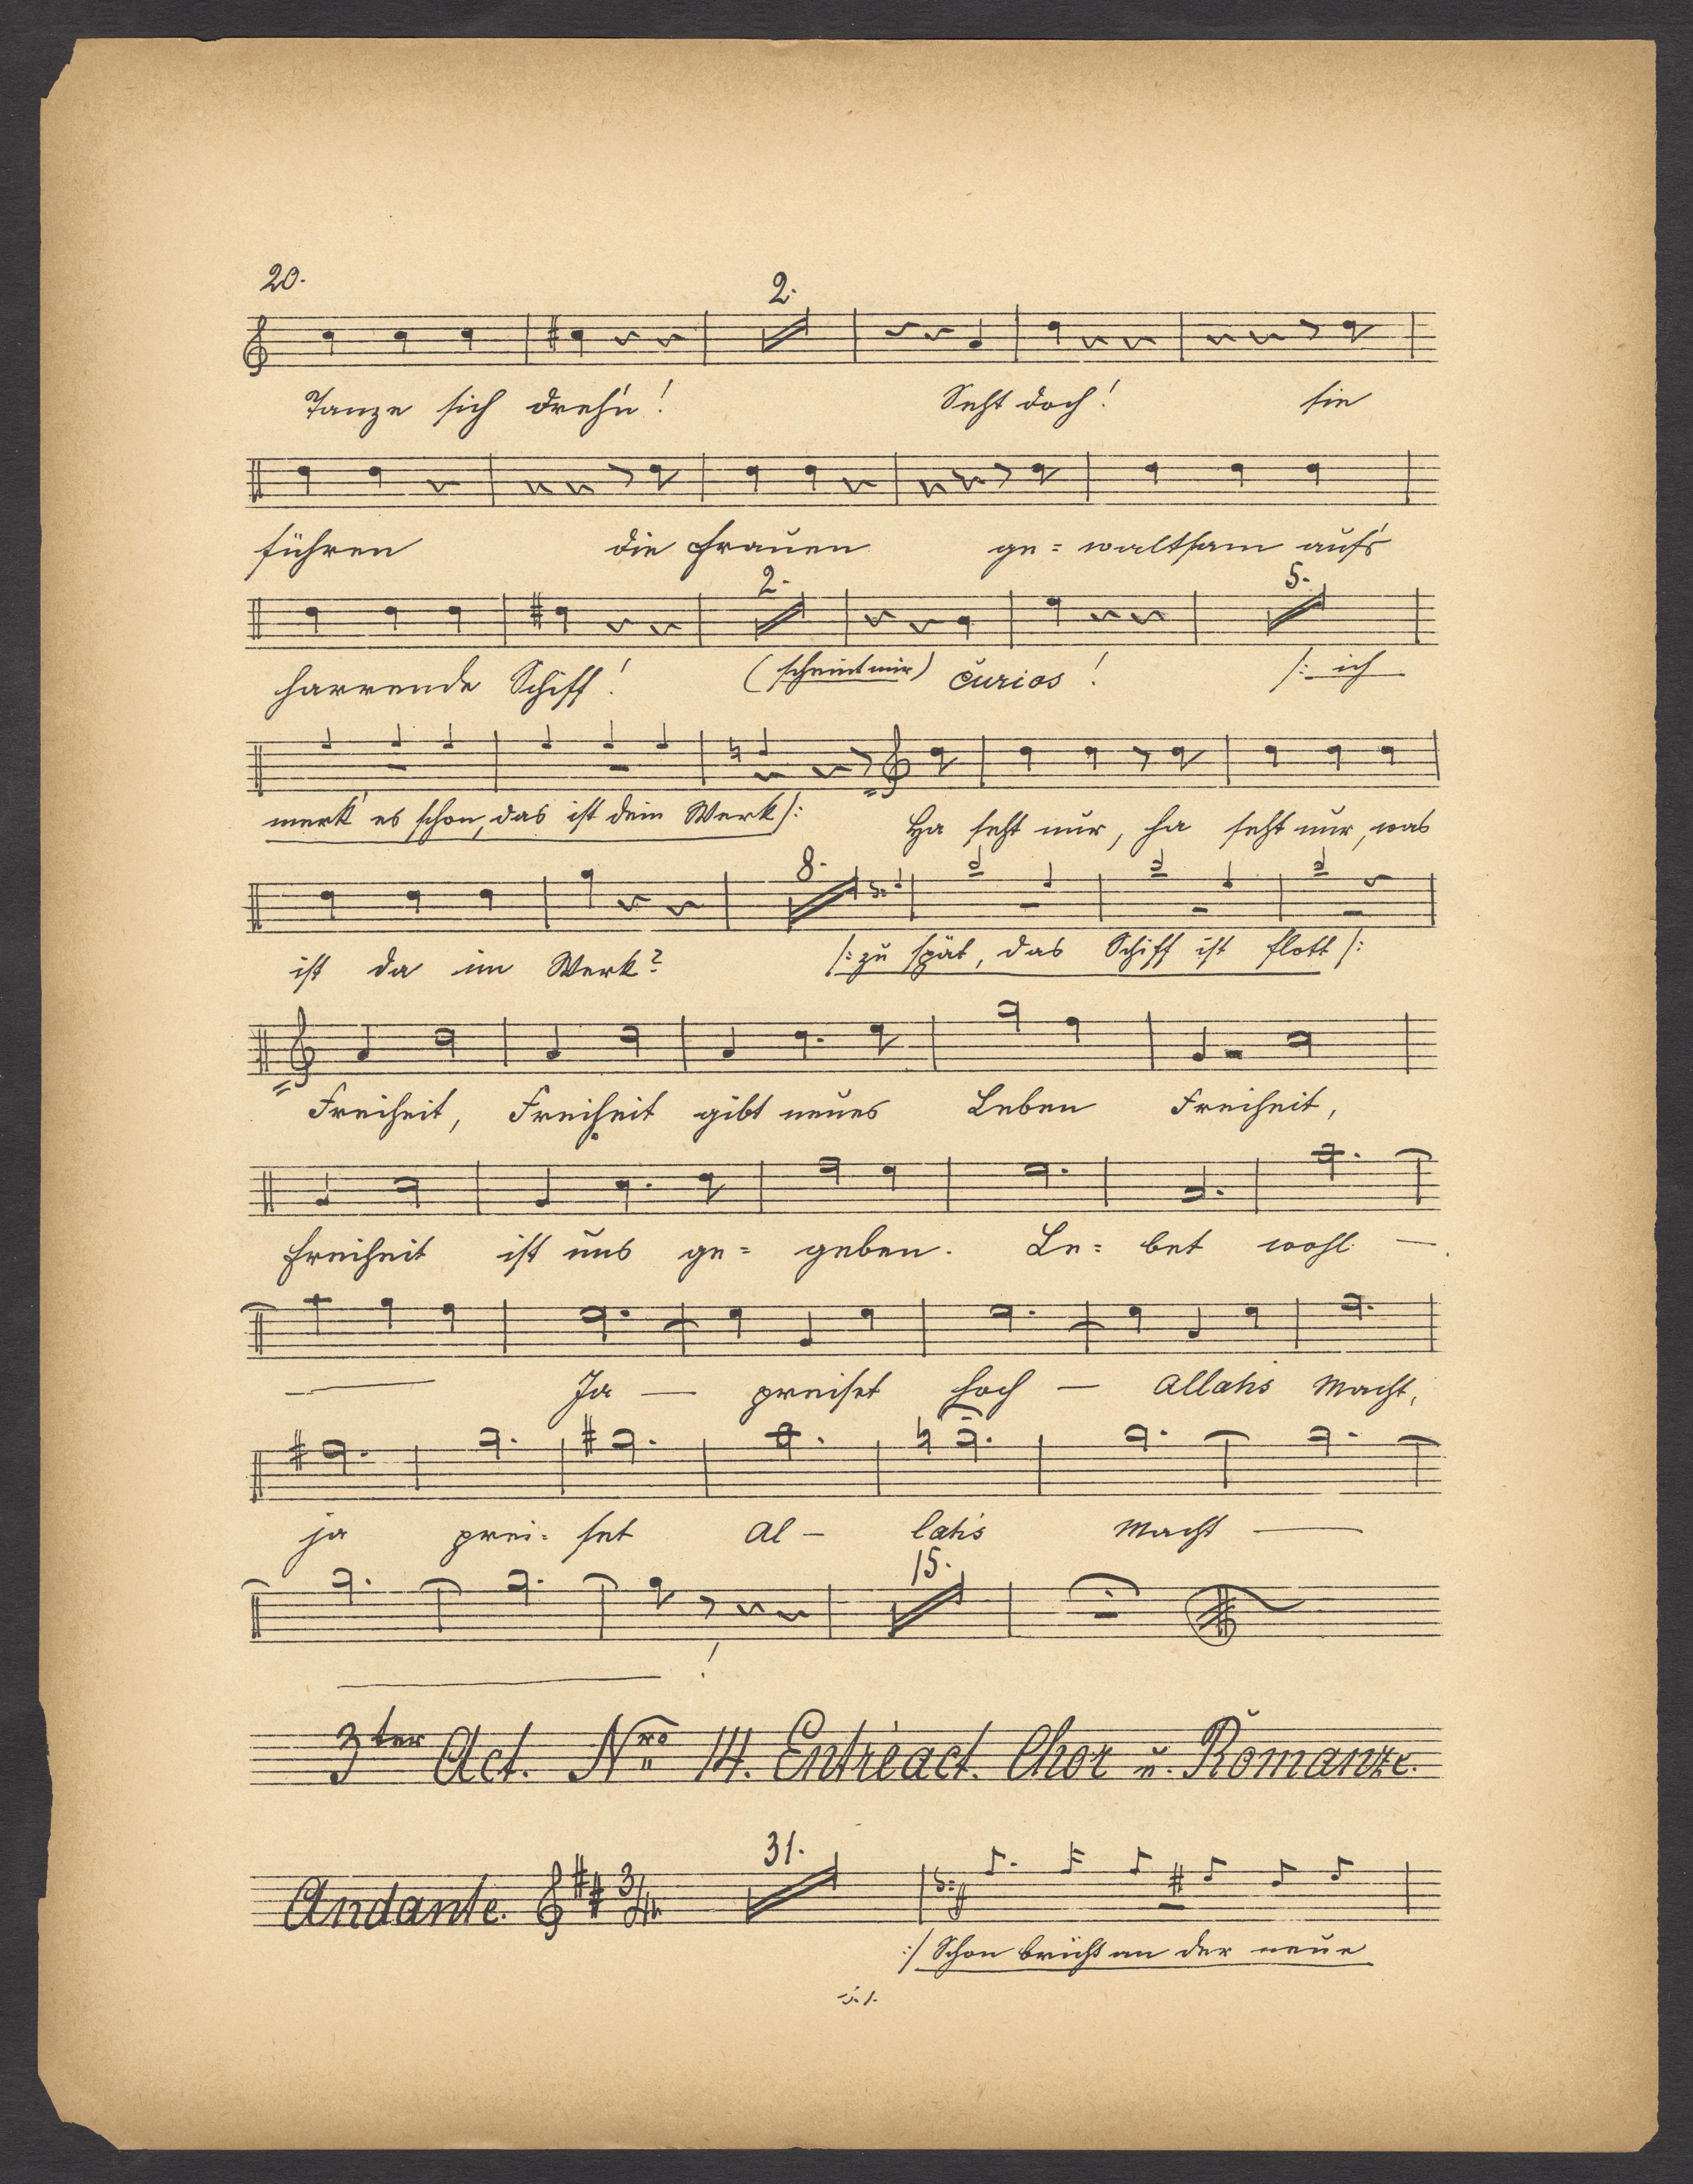 20.
2.
Tanze sich dreh'n! Seht doch! sie
führen die Frauen ge= waltsam auf's
2. 5.
harrende Schiff! (scheint mir) curios! /: ich
merk' es schon, das ist dein Werk /: Ha seht nur, ha seht nur, was
8.
ist da im Werk? /: zu spät, das Schiff ist flott /:
Freiheit, Freiheit gibt neues Leben Freiheit,
Freiheit ist uns ge= geben. Le= bet wohl —
— Ja — preiset hoch — Allah's Macht,
ja prei= set Al — lah's Macht —
15.
— !
3ter Act. Nro 14. Entréact. Chor u. Romanze.
31.
Andante. 3/4
:/ Schon bricht an der neue